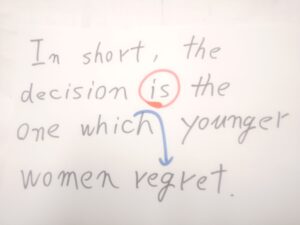 In short, the
decision is the
one which younger
women regret.